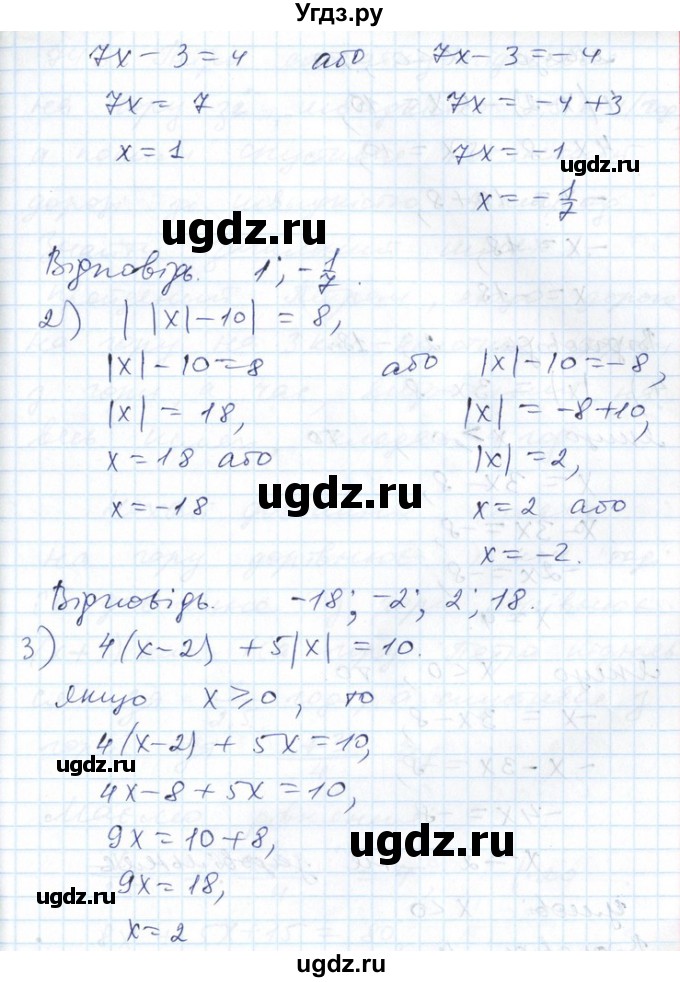 Угдз.ру
7x - 3 = 4 або 7x - 3 = -4
7x = 7 7x = -4 + 3
x = 1 7x = -1
x = -1/7
Відповідь. 1; -1/7.
2) | |x| - 10| = 8,
|x| - 10 = 8 або |x| - 10 = -8,
|x| = 18, |x| = -8 + 10,
x = 18 або |x| = 2,
x = -18 x = 2 або
x = -2.
Відповідь. -18; -2; 2; 18.
3) 4(x - 2) + 5|x| = 10.
якщо x ⩾ 0, то
4(x - 2) + 5x = 10,
4x - 8 + 5x = 10,
9x = 10 + 8,
9x = 18,
x = 2
ugdz.ru
ugdz.ru
ugdz.ru
ugdz.ru
ugdz.ru
ugdz.ru
ugdz.ru